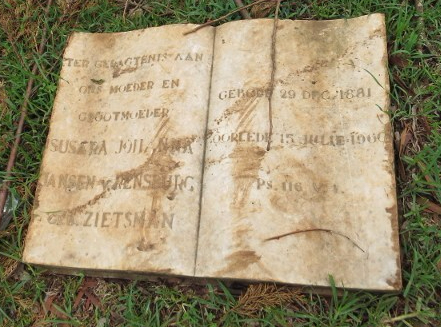 TER GEDAGTENIS AAN
ONS MOEDER EN
GROOTMOEDER
SUSARA JOHANNA
JANSEN v. RENSBURG
GEB. ZIETSMAN
GEBORE 29 DEC. 1881
OORLEDE 15 JULIE
PS. 116 V.